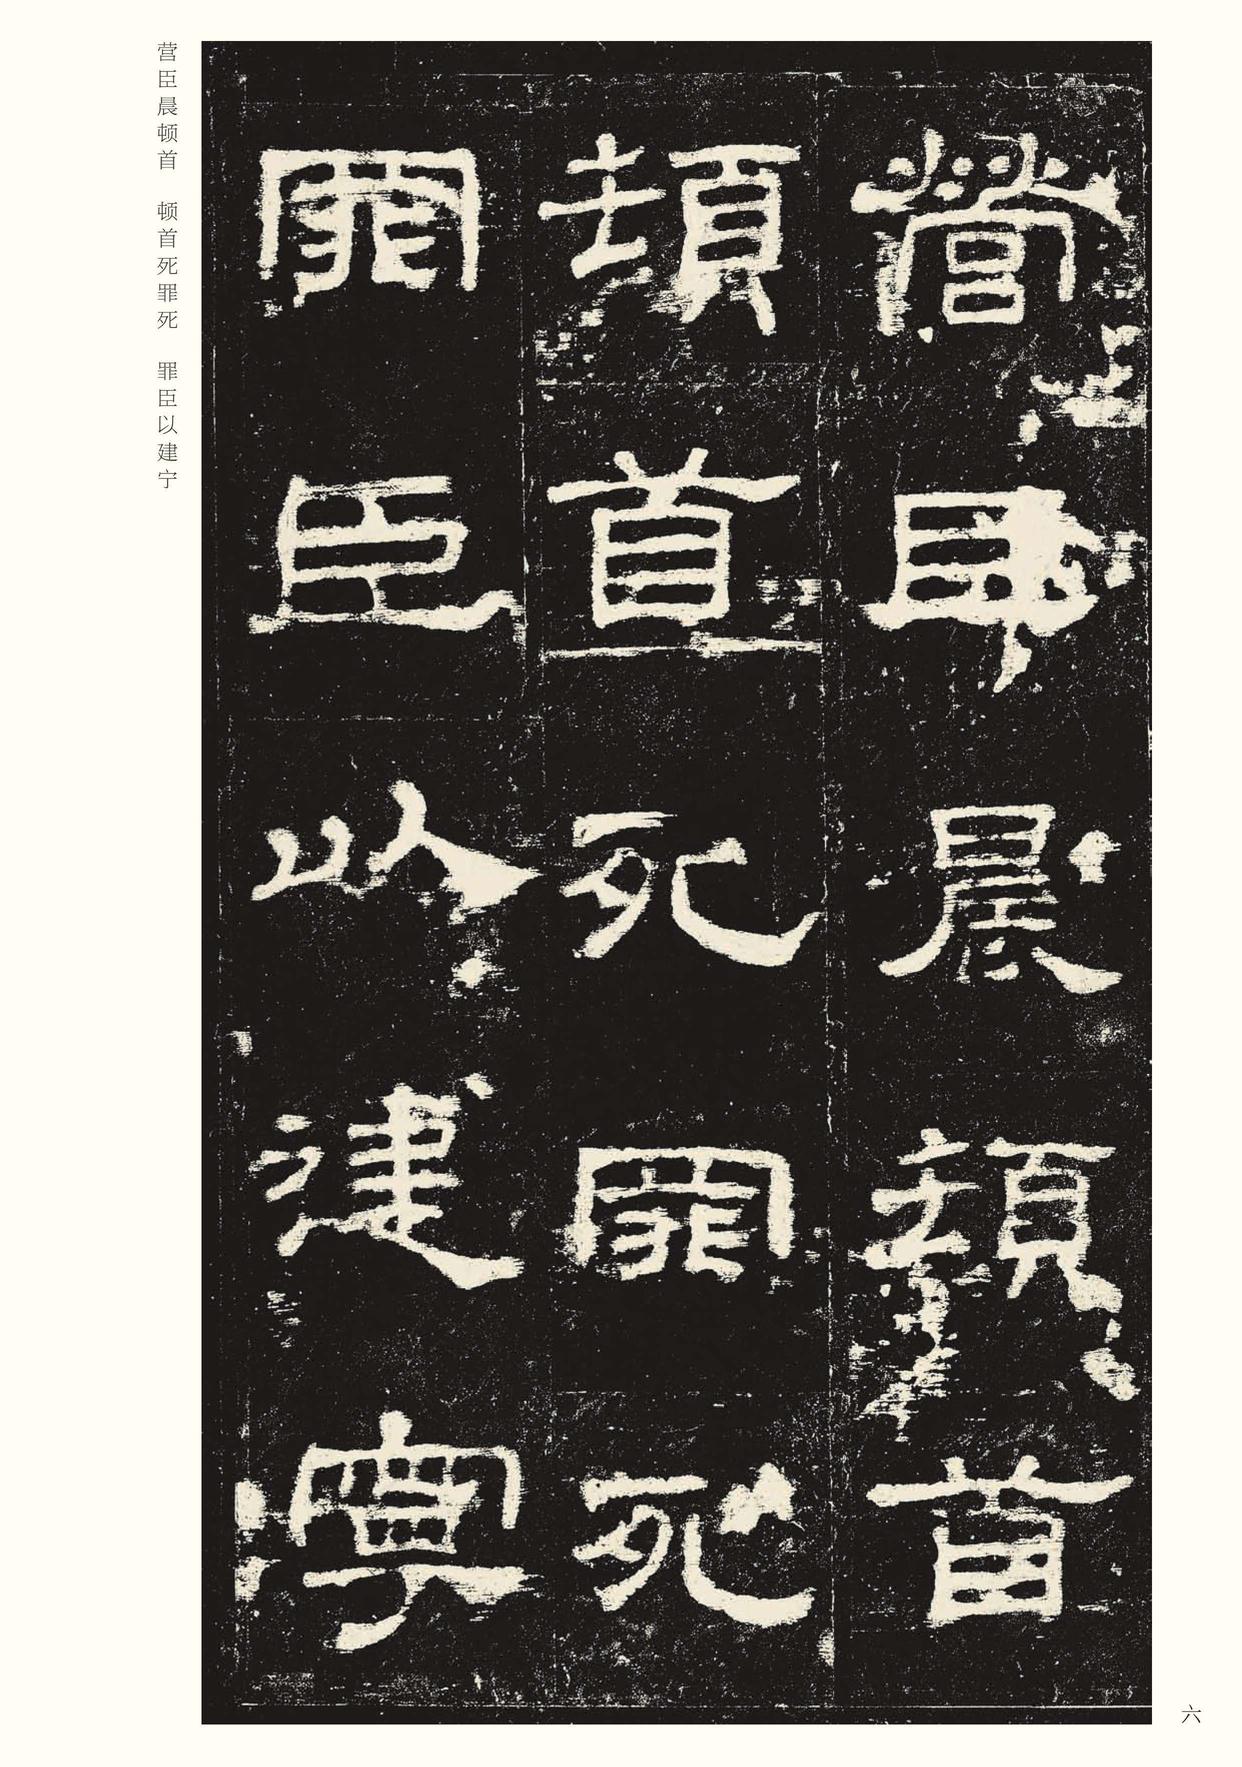 營臣晨頓首
頓首死罪死
罪臣以建寧
营臣晨顿首 顿首死罪死 罪臣以建宁
六